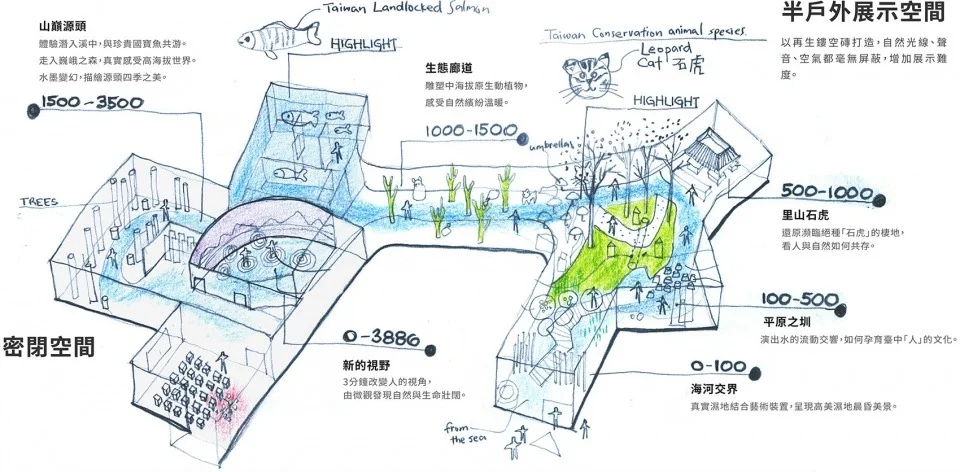 Taiwan Landlocked Salmon
HIGHLIGHT
山巔源頭
體驗潛入溪中,與珍貴國寶魚共游。
走入巍峨之森,真實感受高海拔世界。
水墨變幻,描繪源頭四季之美。
1500-3500
生態廊道
雕塑中海拔原生動植物,
感受自然繽紛溫暖。
1000-1500
umbrellas
Taiwan Conservation animal species.
Leopard
Cat 石虎
HIGHLIGHT
半戶外展示空間
以再生鏤空磚打造,自然光線、聲
音、空氣都毫無屏蔽,增加展示難
度。
TREES
500-1000
里山石虎
還原瀕臨絕種「石虎」的棲地,
看人與自然如何共存。
100-500
平原之圳
演出水的流動交響,如何孕育臺中「人」的文化。
密閉空間
0-3886
新的視野
3分鐘改變人的視角,
由微觀發現自然與生命壯闊。
0-100
海河交界
真實濕地結合藝術裝置,呈現高美濕地晨昏美景。
from
the sea